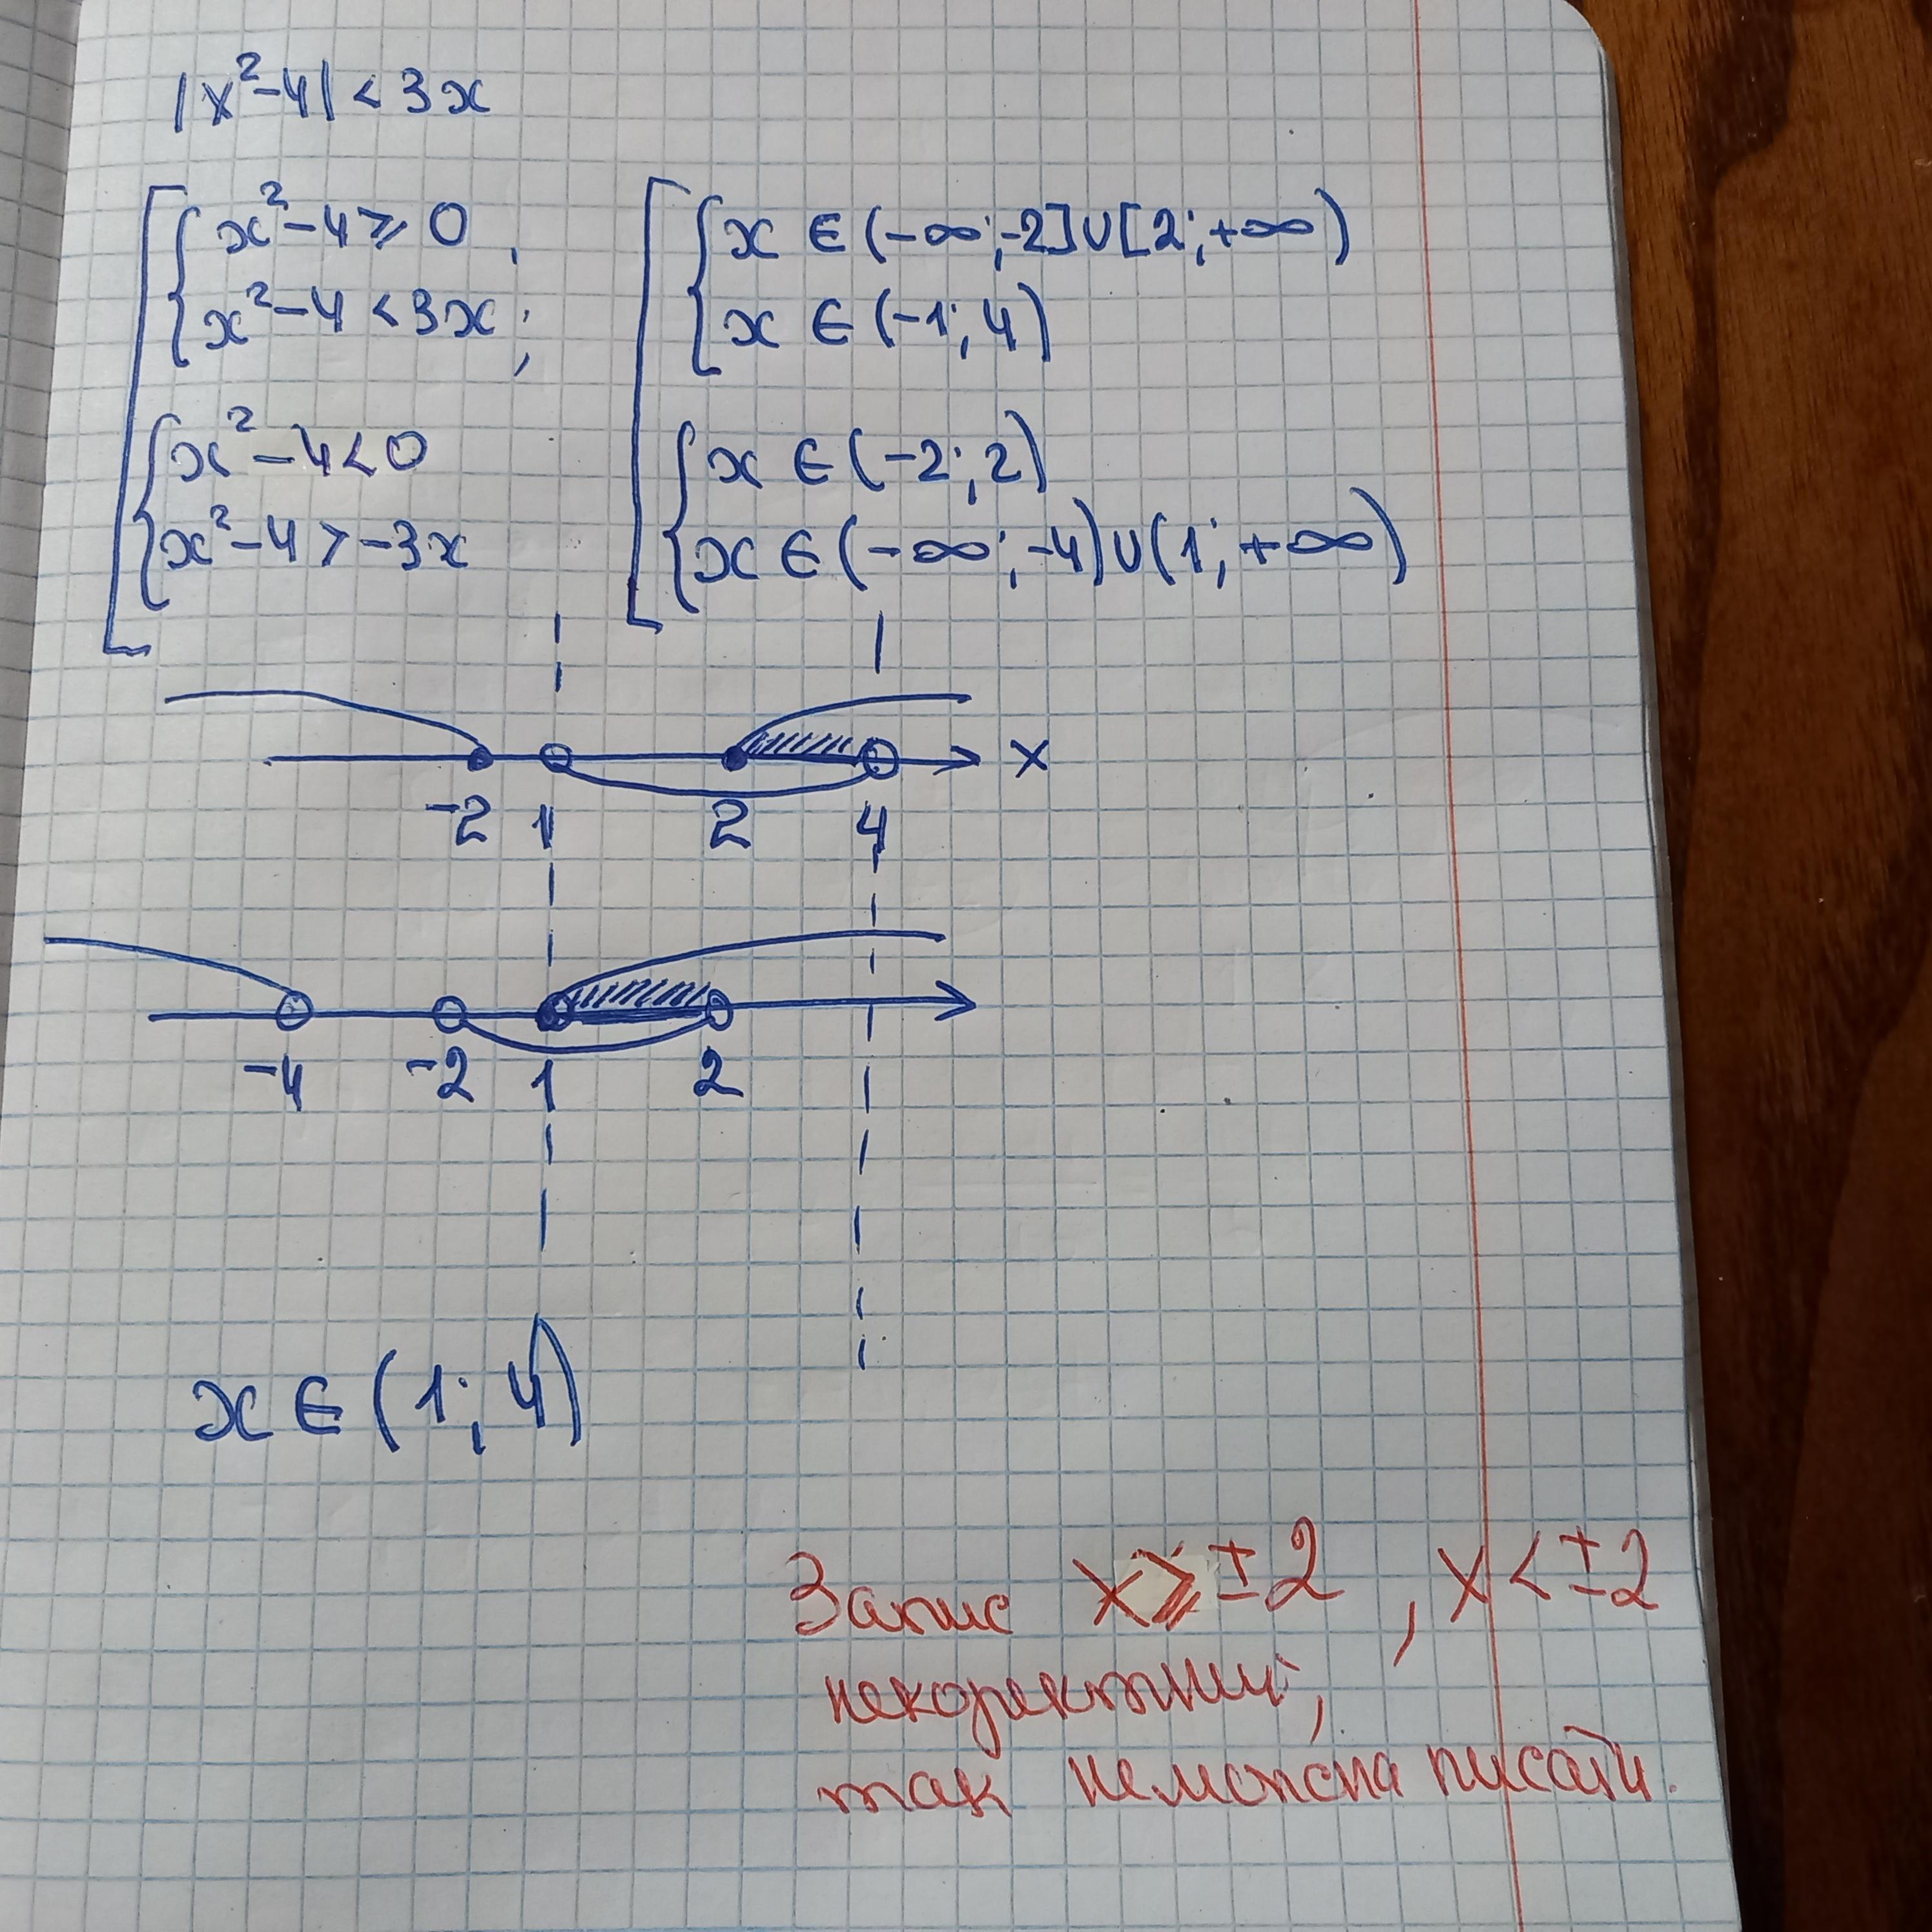 |x²-4| < 3x
x²-4 ≥ 0,
x²-4 < 3x;
x²-4 < 0
x²-4 > -3x
x ∈ (-∞; -2] ∪ [2; +∞)
x ∈ (-1; 4)
x ∈ (-2; 2)
x ∈ (-∞; -4) ∪ (1; +∞)
x
-2 1 2 4
-4 -2 1 2
x ∈ (1; 4)
Запис x ≥ ±2, x < ±2
некоректний,
так не можна писати.